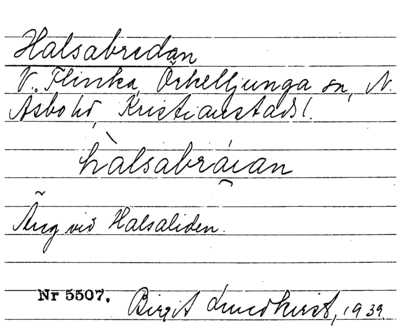 Halsabredan
V. Flinka, Örkelljunga sn, N.
Åsbo hd, Kristianstads l.
hàlsabräian
Äng vid Halsaliden.
Nr 5507. Birgit Lundkvist, 1939